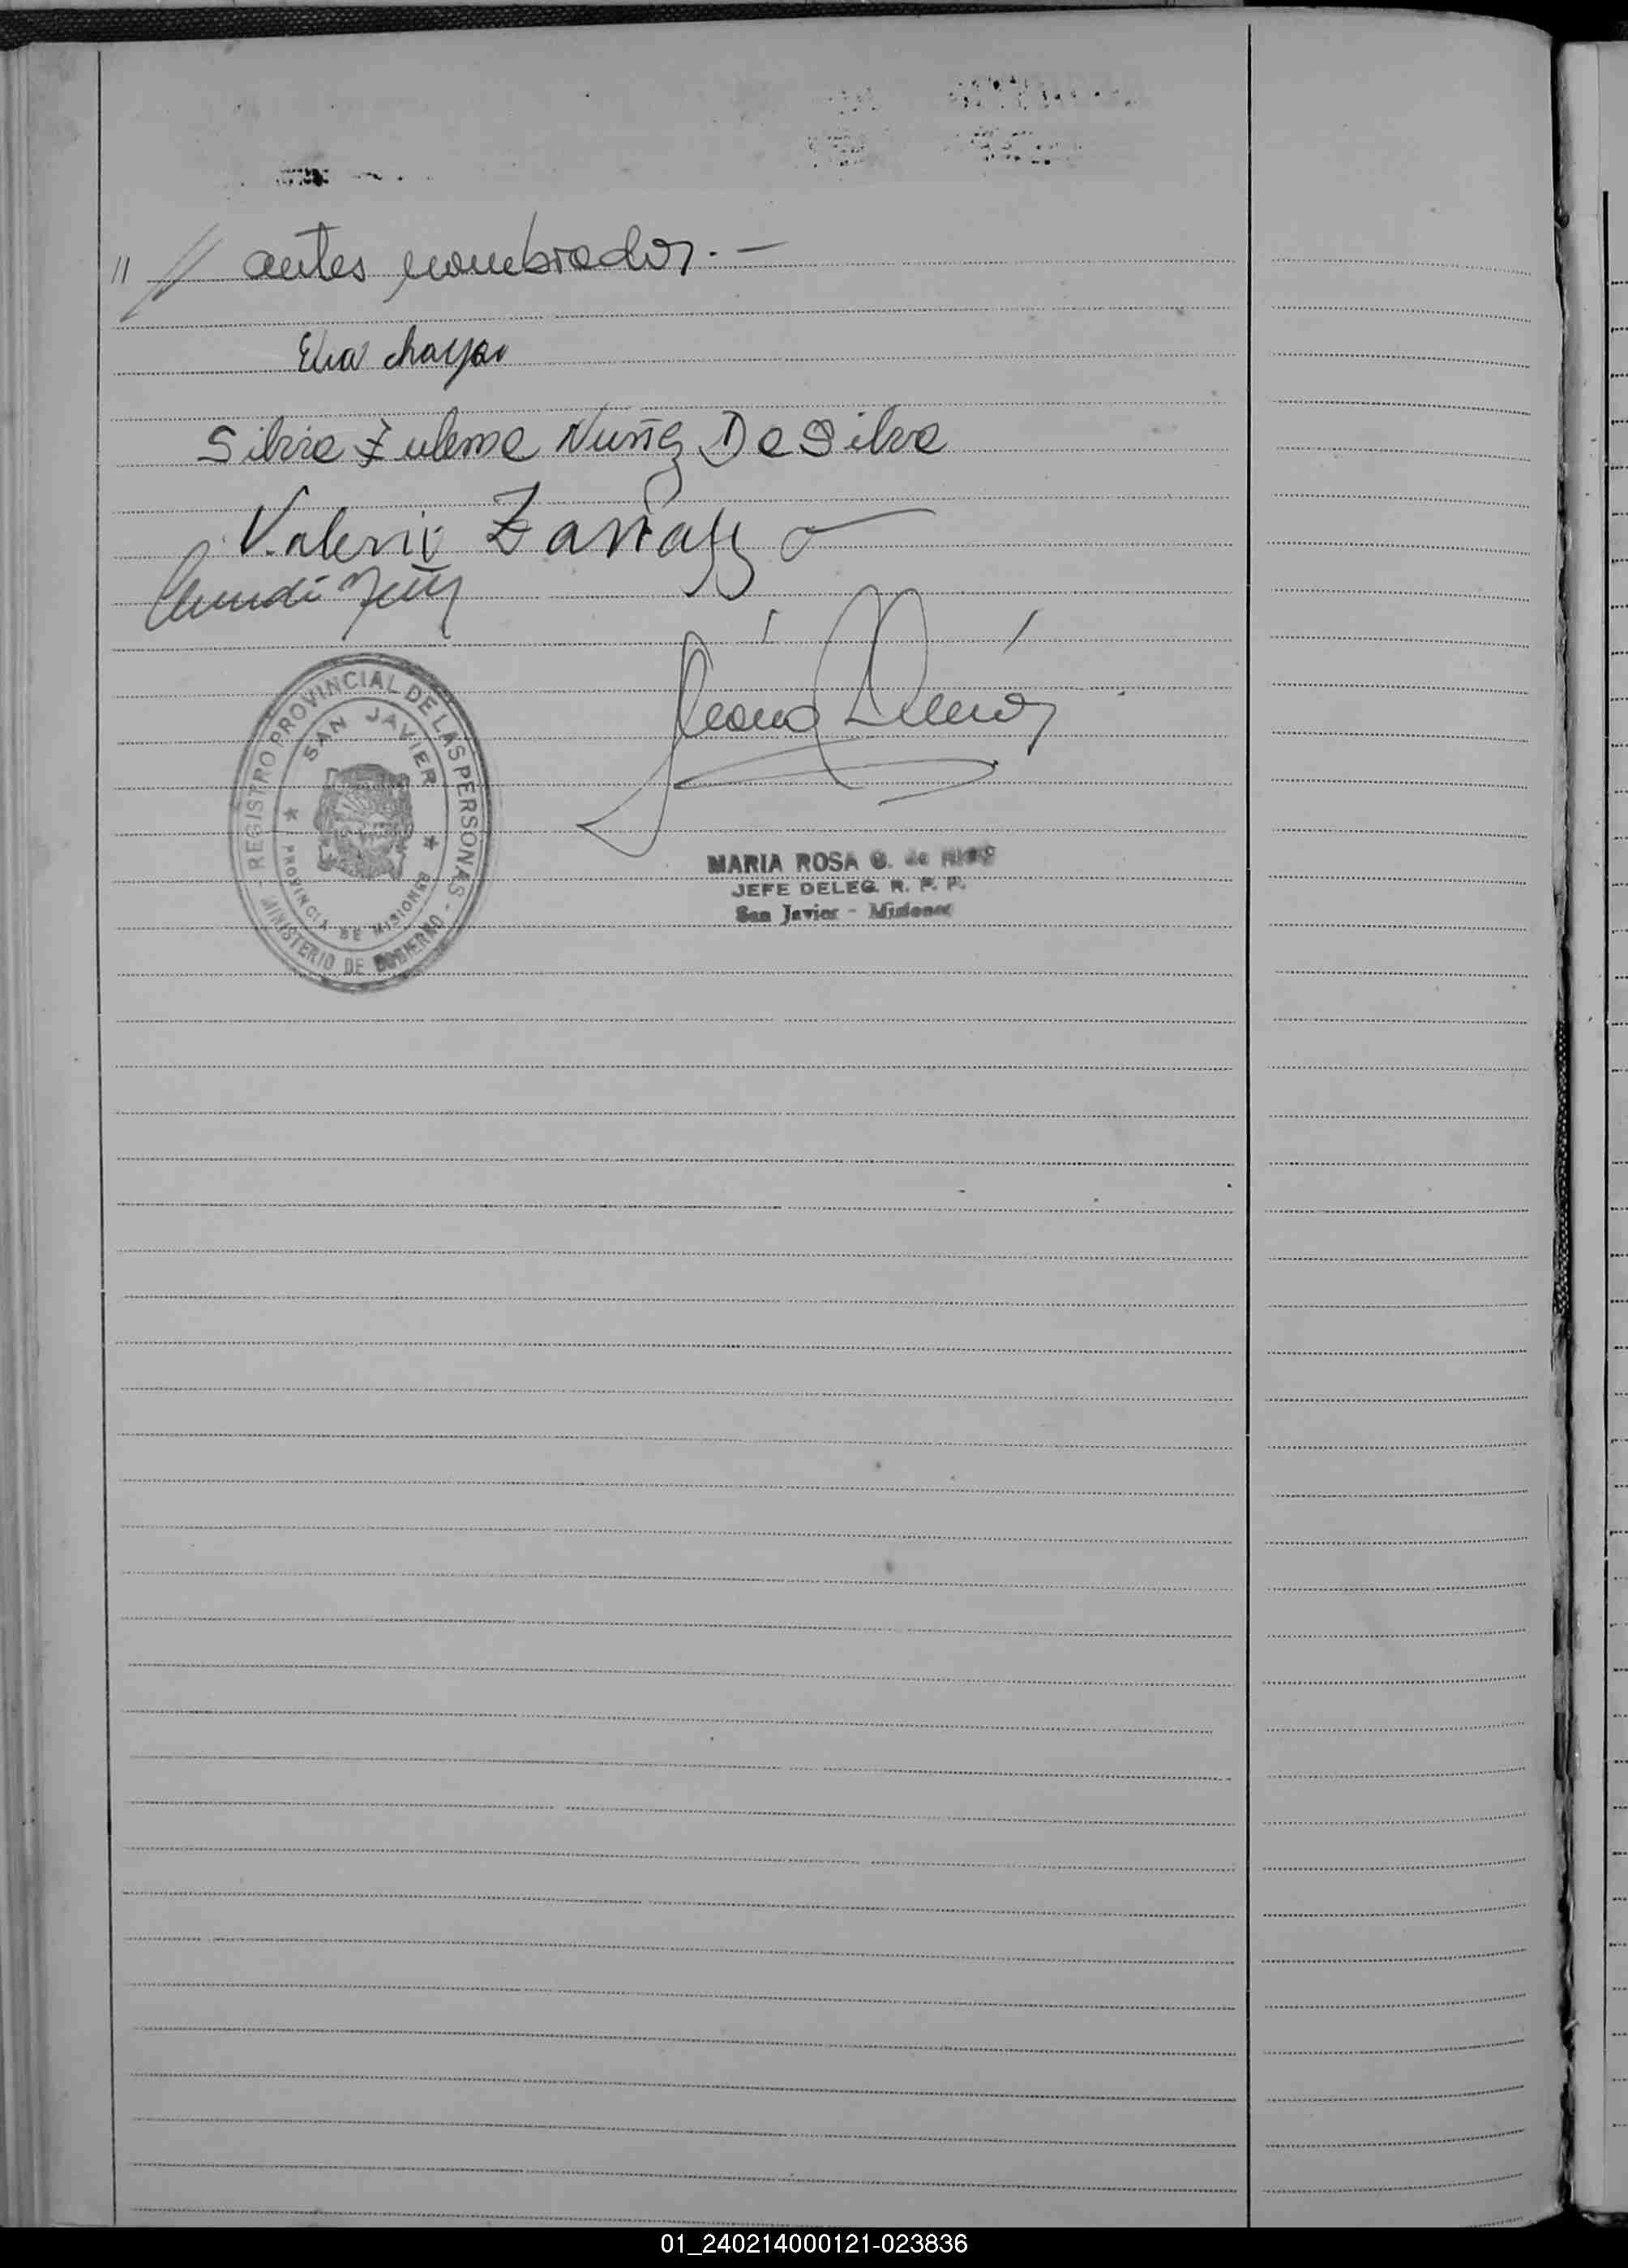 " // antes nombrados. —
Elva Chayo
Silvia Zulema Nuñez Da Silva
Valerio
REGISTRO PROVINCIAL DE LAS PERSONAS
SAN JAVIER
PROVINCIA DE MISIONES
- MINISTERIO DE GOBIERNO -
MARIA ROSA G. de RIOS
JEFE DELEG. R. P. P.
San Javier - Misiones
01_240214000121-023836